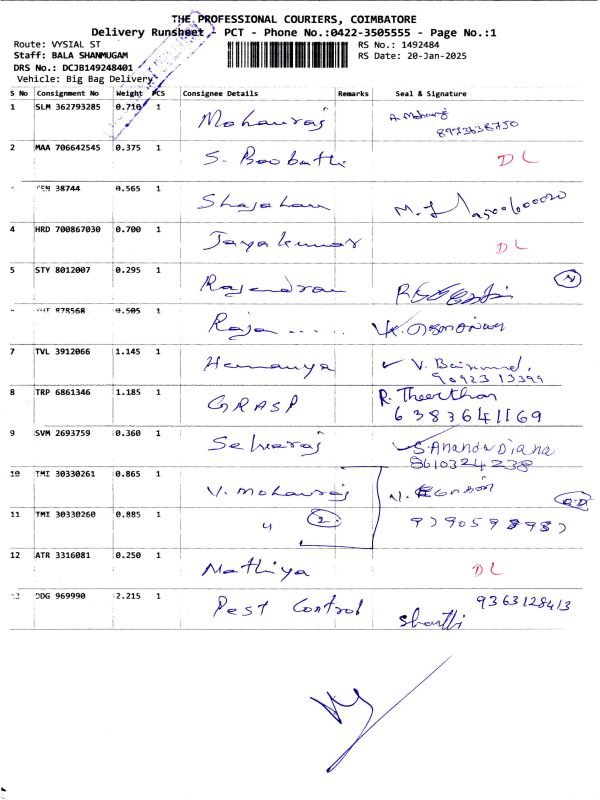 THE PROFESSIONAL COURIERS, COIMBATORE
Delivery Runsheet - PCT - Phone No.:0422-3505555 - Page No.:1
Route: VYSIAL ST
RS No.: 1492484
Staff: BALA SHANMUGAM
RS Date: 20-Jan-2025
DRS No.: DCJB149248401
Vehicle: Big Bag Delivery
S No Consignment No Weight PCS Consignee Details Remarks Seal & Signature
1 SLM 362793285 0.710 1 Mohanraj A. Mohanraj
8973638750
2 MAA 706642545 0.375 1 S. Boobathi DL
38744 0.565 1 Shajahan
4 HRD 700867030 0.700 1 Jayakumar DL
5 STY 8012007 0.295 1 Rajendran
878568 0.505 1 Raja .....
7 TVL 3912066 1.145 1 Hemanya V.
90923 13399
8 TRP 6861346 1.185 1 GRASP R. Theerthan
6383641169
9 SVM 2693759 0.360 1 Selvaraj S. Ananda Diana
8610324238
10 TMI 30330261 0.865 1 V. Mohanraj
11 TMI 30330260 0.885 1 " 2 9790598987
12 ATR 3316081 0.250 1 Mathiya DL
DDG 969990 2.215 1 Pest Control 9363128413
Shanthi